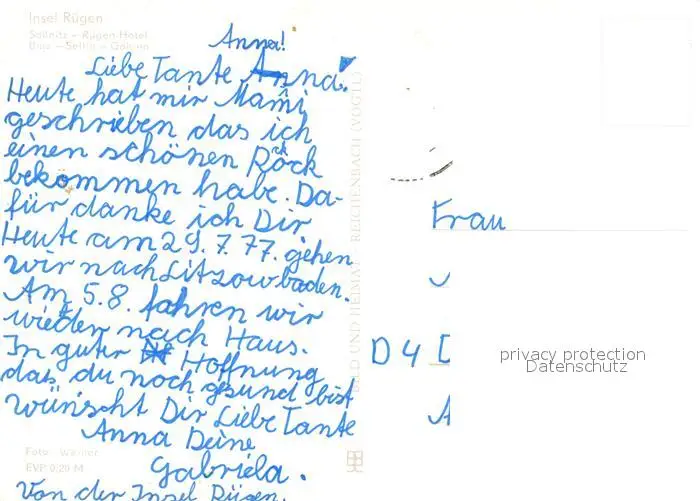 Insel Rügen
Saßnitz – Rügen-Hotel
Binz – Sellin – Göhren
Anna!
Liebe Tante Anna.
Heute hat mir Mami
geschrieben das ich
einen schönen Rock
bekommen habe. Da-
für danke ich Dir
Heute am 29.7.77. gehen
wir nach Litzowbaden.
Am 5.8. fahren wir
wieder nach Haus.
In guter Hoffnung
das du noch gesund bist
wünscht Dir Liebe Tante
Anna Deine
Gabriela.
Von der Insel Rügen.
Foto:
EVP 0,20 M
BILD UND HEIMAT REICHENBACH (VOGTL)
Frau
D 4
privacy protection
Datenschutz